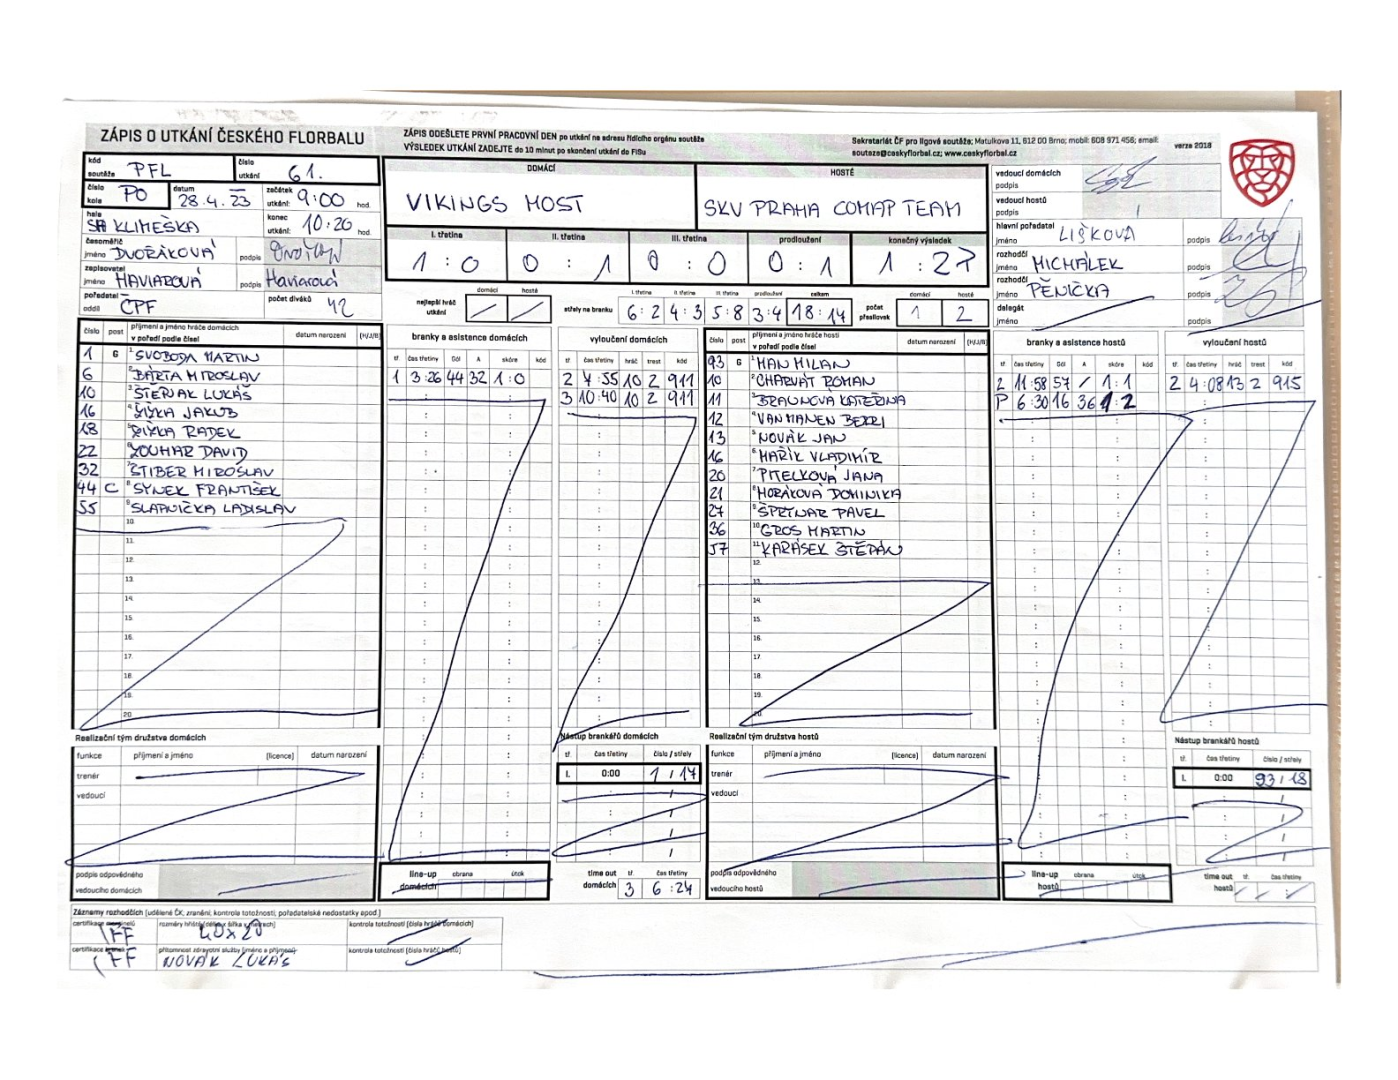 ZÁPIS O UTKÁNÍ ČESKÉHO FLORBALU
ZÁPIS ODEŠLETE PRVNÍ PRACOVNÍ DEN po utkání na adresu řídícího orgánu soutěže
VÝSLEDEK UTKÁNÍ ZADEJTE do 10 minut po skončení utkání do FiSu
Sekretariát ČF pro ligové soutěže: Matulkova 11, 612 00 Brno; mobil: 608 971 456; email:
soutaze@ceskyflorbal.cz; www.ceskyflorbal.cz
verze 2018
kód soutěže PFL číslo utkání 61.
číslo kola PO datum 28.4.23 začátek utkání: 9:00 hod.
hala SH KLIMEŠKA konec utkání: 10:20 hod.
časoměřič jméno DVOŘÁKOVÁ podpis
zapisovatel jméno HAVIAROVÁ podpis Haviarová
pořadatel oddíl ČPF počet diváků 42
DOMÁCÍ HOSTÉ
VIKINGS MOST SKV PRAHA COMAP TEAM
I. třetina II. třetina III. třetina prodloužení konečný výsledek
1 : 0 0 : 1 0 : 0 0 : 1 1 : 2P
nejlepší hráč utkání domácí hosté
střely na branku I. třetina II. třetina III. třetina prodloužení celkem
6 : 2 4 : 3 5 : 8 3 : 4 18 : 17
počet přesilovek domácí hosté 1 2
vedoucí domácích podpis
vedoucí hostů podpis
hlavní pořadatel jméno LIŠKOVÁ podpis
rozhodčí jméno MICHÁLEK podpis
rozhodčí jméno PĚNIČKA
delegát jméno podpis
číslo post příjmení a jméno hráče domácích v pořadí podle čísel datum narození (H/J/B)
1 G 1. SVOBODA MARTIN
6 2. BÁRTA MIROSLAV
10 3. ŠTERJAK LUKÁŠ
16 4. ŽIŽKA JAKUB
18 5. ŽIŽKA RADEK
22 6. ZOUHAR DAVID
32 7. ŠTIBER MIROSLAV
44 C 8. SYNEK FRANTIŠEK
55 9. SLAPNIČKA LADISLAV
10.
11.
12.
13.
14.
15.
16.
17.
18.
19.
20.
branky a asistence domácích
tř. čas třetiny Gól A skóre kód
1 3:26 44 32 1:0
vyloučení domácích
tř. čas třetiny hráč trest kód
2 4:55 10 2 911
3 10:40 10 2 911
číslo post příjmení a jméno hráče hostí v pořadí podle čísel datum narození (H/J/B)
93 G 1. MAN MILAN
10 2. CHARVÁT ROMAN
11 3. BRAUNOVÁ KATEŘINA
12 4. VAN MANEN BERRI
13 5. NOVÁK JAN
16 6. MAŘÍK VLADIMÍR
20 7. PITELKOVÁ JANA
21 8. HORÁKOVÁ DOMINIKA
27 9. ŠPRTNAR PAVEL
36 10. GROS MARTIN
57 11. KARÁSEK ŠTĚPÁN
12.
13.
14.
15.
16.
17.
18.
19.
20.
branky a asistence hostů
tř. čas třetiny Gól A skóre kód
2 11:58 57 / 1:1
P 6:30 16 36 1:2
vyloučení hostů
tř. čas třetiny hráč trest kód
2 4:08 13 2 915
Realizační tým družstva domácích
funkce příjmení a jméno [licence] datum narození
trenér
vedoucí
podpis odpovědného vedoucího domácích
Nástup brankářů domácích
tř. čas třetiny číslo / střely
I. 0:00 1 / 17
line-up domácích obrana útok
time out domácích tř. čas třetiny
3 6:24
Realizační tým družstva hostů
funkce příjmení a jméno [licence] datum narození
trenér
vedoucí
podpis odpovědného vedoucího hostů
Nástup brankářů hostů
tř. čas třetiny číslo / střely
I. 0:00 93 / 18
line-up hostů obrana útok
time out hostů tř. čas třetiny
Záznamy rozhodčích [udělené ČK, zranění, kontrola totožnosti, pořadatelské nedostatky apod.]
certifikace IFF rozměry hřiště 40x20 kontrola totožnosti [čísla hráčů domácích]
certifikace IFF přítomnost zdravotní služby [jméno a příjmení] NOVÁK LUKÁŠ kontrola totožnosti [čísla hráčů hostů]